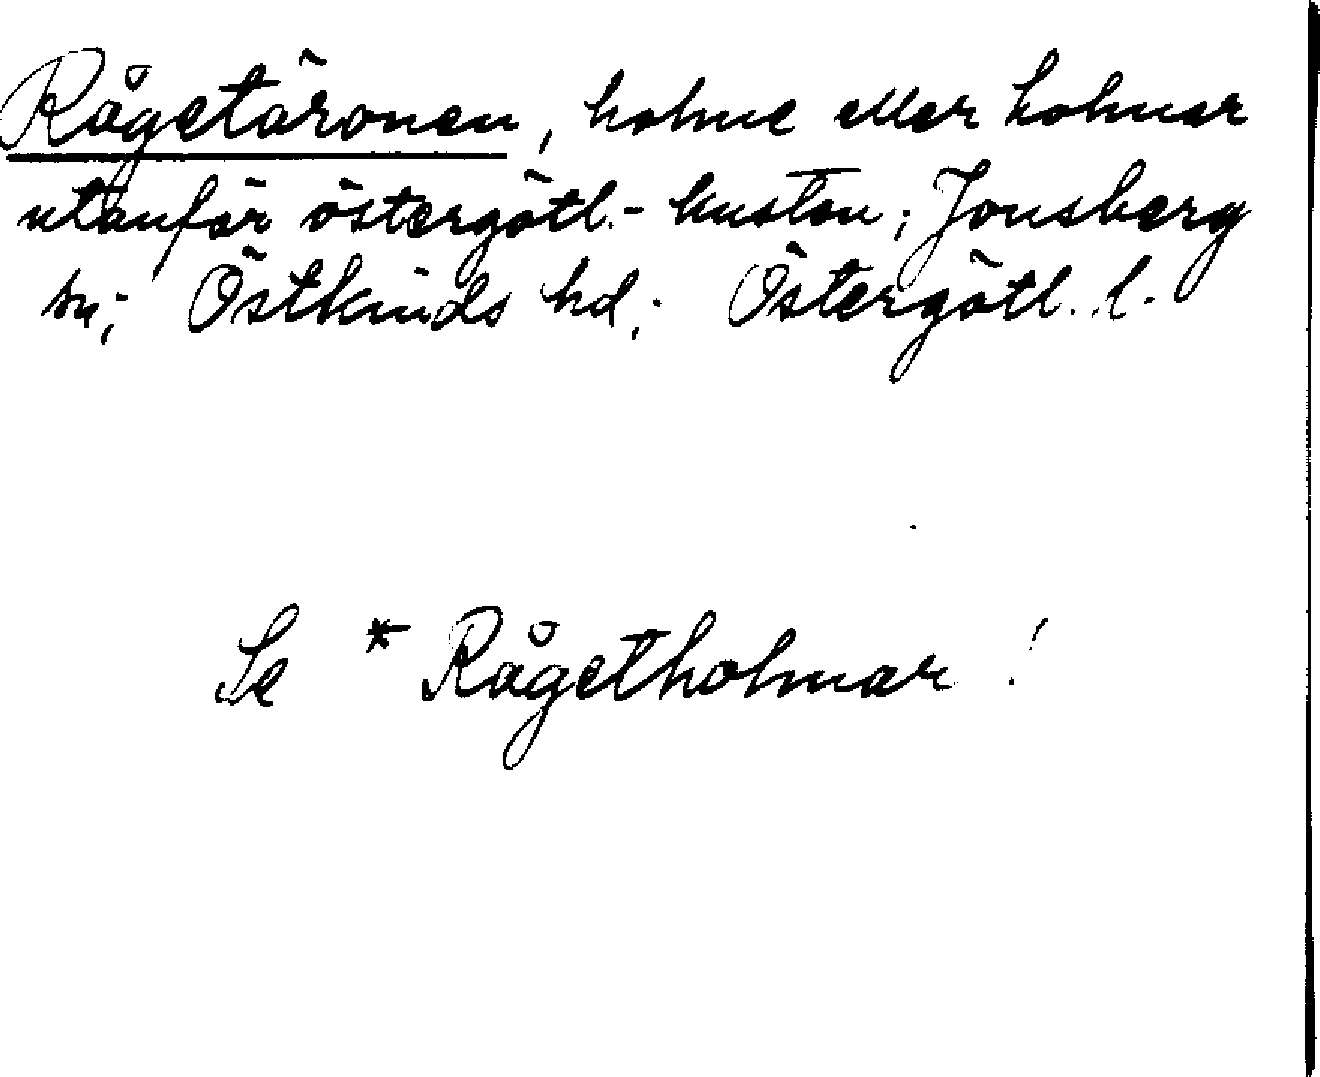 Rågetöronen, holme eller holmar
utanför östergötl.-kusten; Jonsberg
sn; Östkinds hd; Östergötl. l.
Se * Rågetholmar !